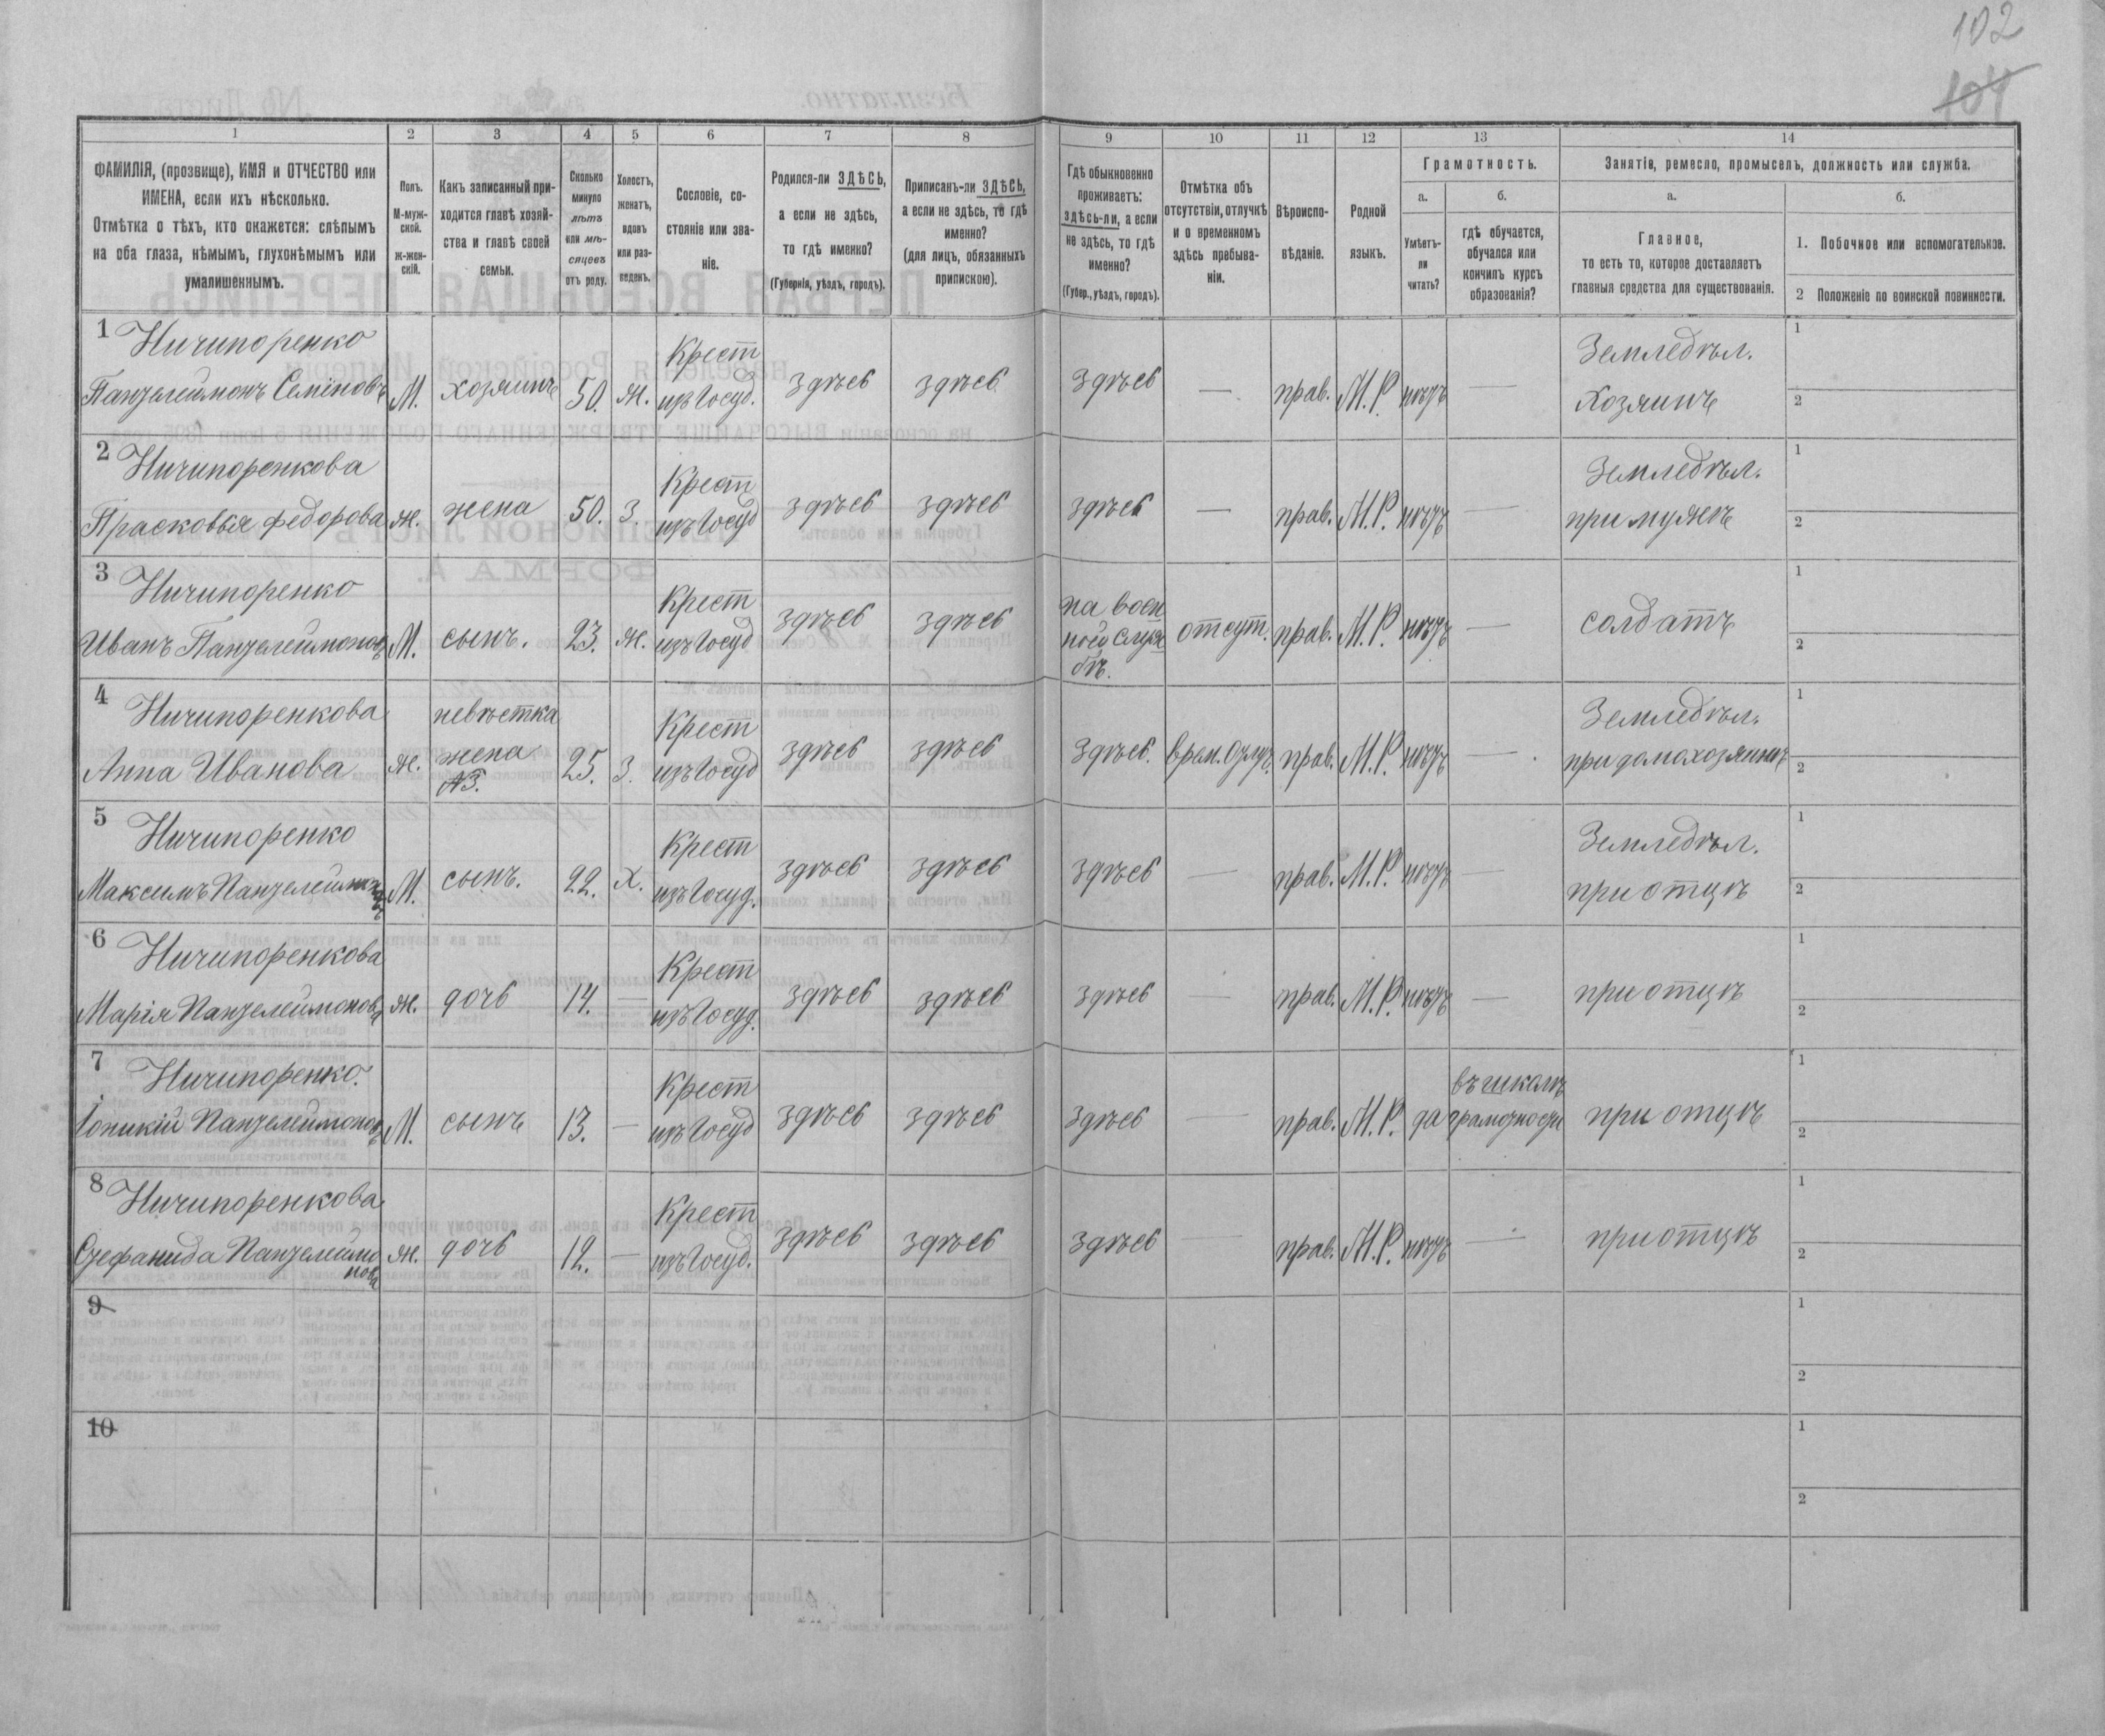 102
104
1
2
3
4
5
6
7
8
9
10
11
12
13
14
ФАМИЛІЯ, (прозвище), ИМЯ и ОТЧЕСТВО или
ИМЕНА, если ихъ нѣсколько.
Отмѣтка о тѣхъ, кто окажется: слѣпымъ
на оба глаза, нѣмымъ, глухонѣмымъ или
умалишеннымъ.
Полъ.
М-муж-
ской.
ж-жен-
скій.
Какъ записанный при-
ходится главѣ хозяй-
ства и главѣ своей
семьи.
Сколько
минуло
лѣтъ
или мѣ-
сяцевъ
отъ роду.
Холостъ,
женатъ,
вдовъ
или раз-
веденъ.
Сословіе, со-
стояніе или зва-
ніе.
Родился-ли ЗДѢСЬ,
а если не здѣсь,
то гдѣ именно?
(Губернія, уѣздъ, городъ).
Приписанъ-ли ЗДѢСЬ,
а если не здѣсь, то гдѣ
именно?
(для лицъ, обязанныхъ
припискою).
Гдѣ обыкновенно
проживаетъ:
здѣсь-ли, а если
не здѣсь, то гдѣ
именно?
(Губер., уѣздъ, городъ).
Отмѣтка объ
отсутствіи, отлучкѣ
и о временномъ
здѣсь пребыва-
ніи.
Вѣроиспо-
вѣданіе.
Родной
языкъ.
Грамотность.
а.
Умѣетъ-
ли
читать?
б.
гдѣ обучается,
обучался или
кончилъ курсъ
образованія?
Занятіе, ремесло, промыселъ, должность или служба.
а.
Главное,
то есть то, которое доставляетъ
главныя средства для существованія.
б.
1. Побочное или вспомогательное.
2 Положеніе по воинской повинности.
1 Ничипоренко Крест Земледѣл. 1
Пантелеймонъ Семіновъ М. хозяинъ 50. ж. изъ Госуд. здѣсь здѣсь здѣсь — прав. М.Р. нѣтъ — Хозяинъ 2
2 Ничипоренкова Крест Земледѣл. 1
Прасковья Федорова ж. жена 50. З. изъ Госуд здѣсь здѣсь здѣсь — прав. М.Р. нѣтъ — при мужѣ 2
3 Ничипоренко Крест на воен 1
Иванъ Пантелеймоновъ М. сынъ. 23. ж. изъ Госуд здѣсь здѣсь ной служ отсут. прав. М.Р. нѣтъ — солдатъ 2
бѣ.
4 Ничипоренкова невѣстка Крест Земледѣл. 1
Анна Иванова ж. жена 25. З. изъ Госуд здѣсь здѣсь здѣсь. врем. прав. М.Р. нѣтъ — при домохозяинѣ 2
№3.
5 Ничипоренко Крест Земледѣл. 1
Максимъ Пантелеймоновъ М. сынъ. 22. Х. изъ Госуд. здѣсь здѣсь здѣсь — прав. М.Р. нѣтъ — при отцѣ 2
6 Ничипоренкова Крест 1
Марія Пантелеймонова ж. дочь 14. — изъ Госуд. здѣсь здѣсь здѣсь — прав. М.Р. нѣтъ — при отцѣ 2
7 Ничипоренко. Крест въ школѣ 1
Іоникій Пантелеймоновъ М. сынъ 13. — изъ Госуд здѣсь здѣсь здѣсь — прав. М.Р. да грамотности при отцѣ 2
8 Ничипоренкова Крест 1
Стефанида Пантелеймо ж. дочь 12. — изъ Госуд. здѣсь здѣсь здѣсь — прав. М.Р. нѣтъ — при отцѣ 2
нова
9 1
2
10 1
2